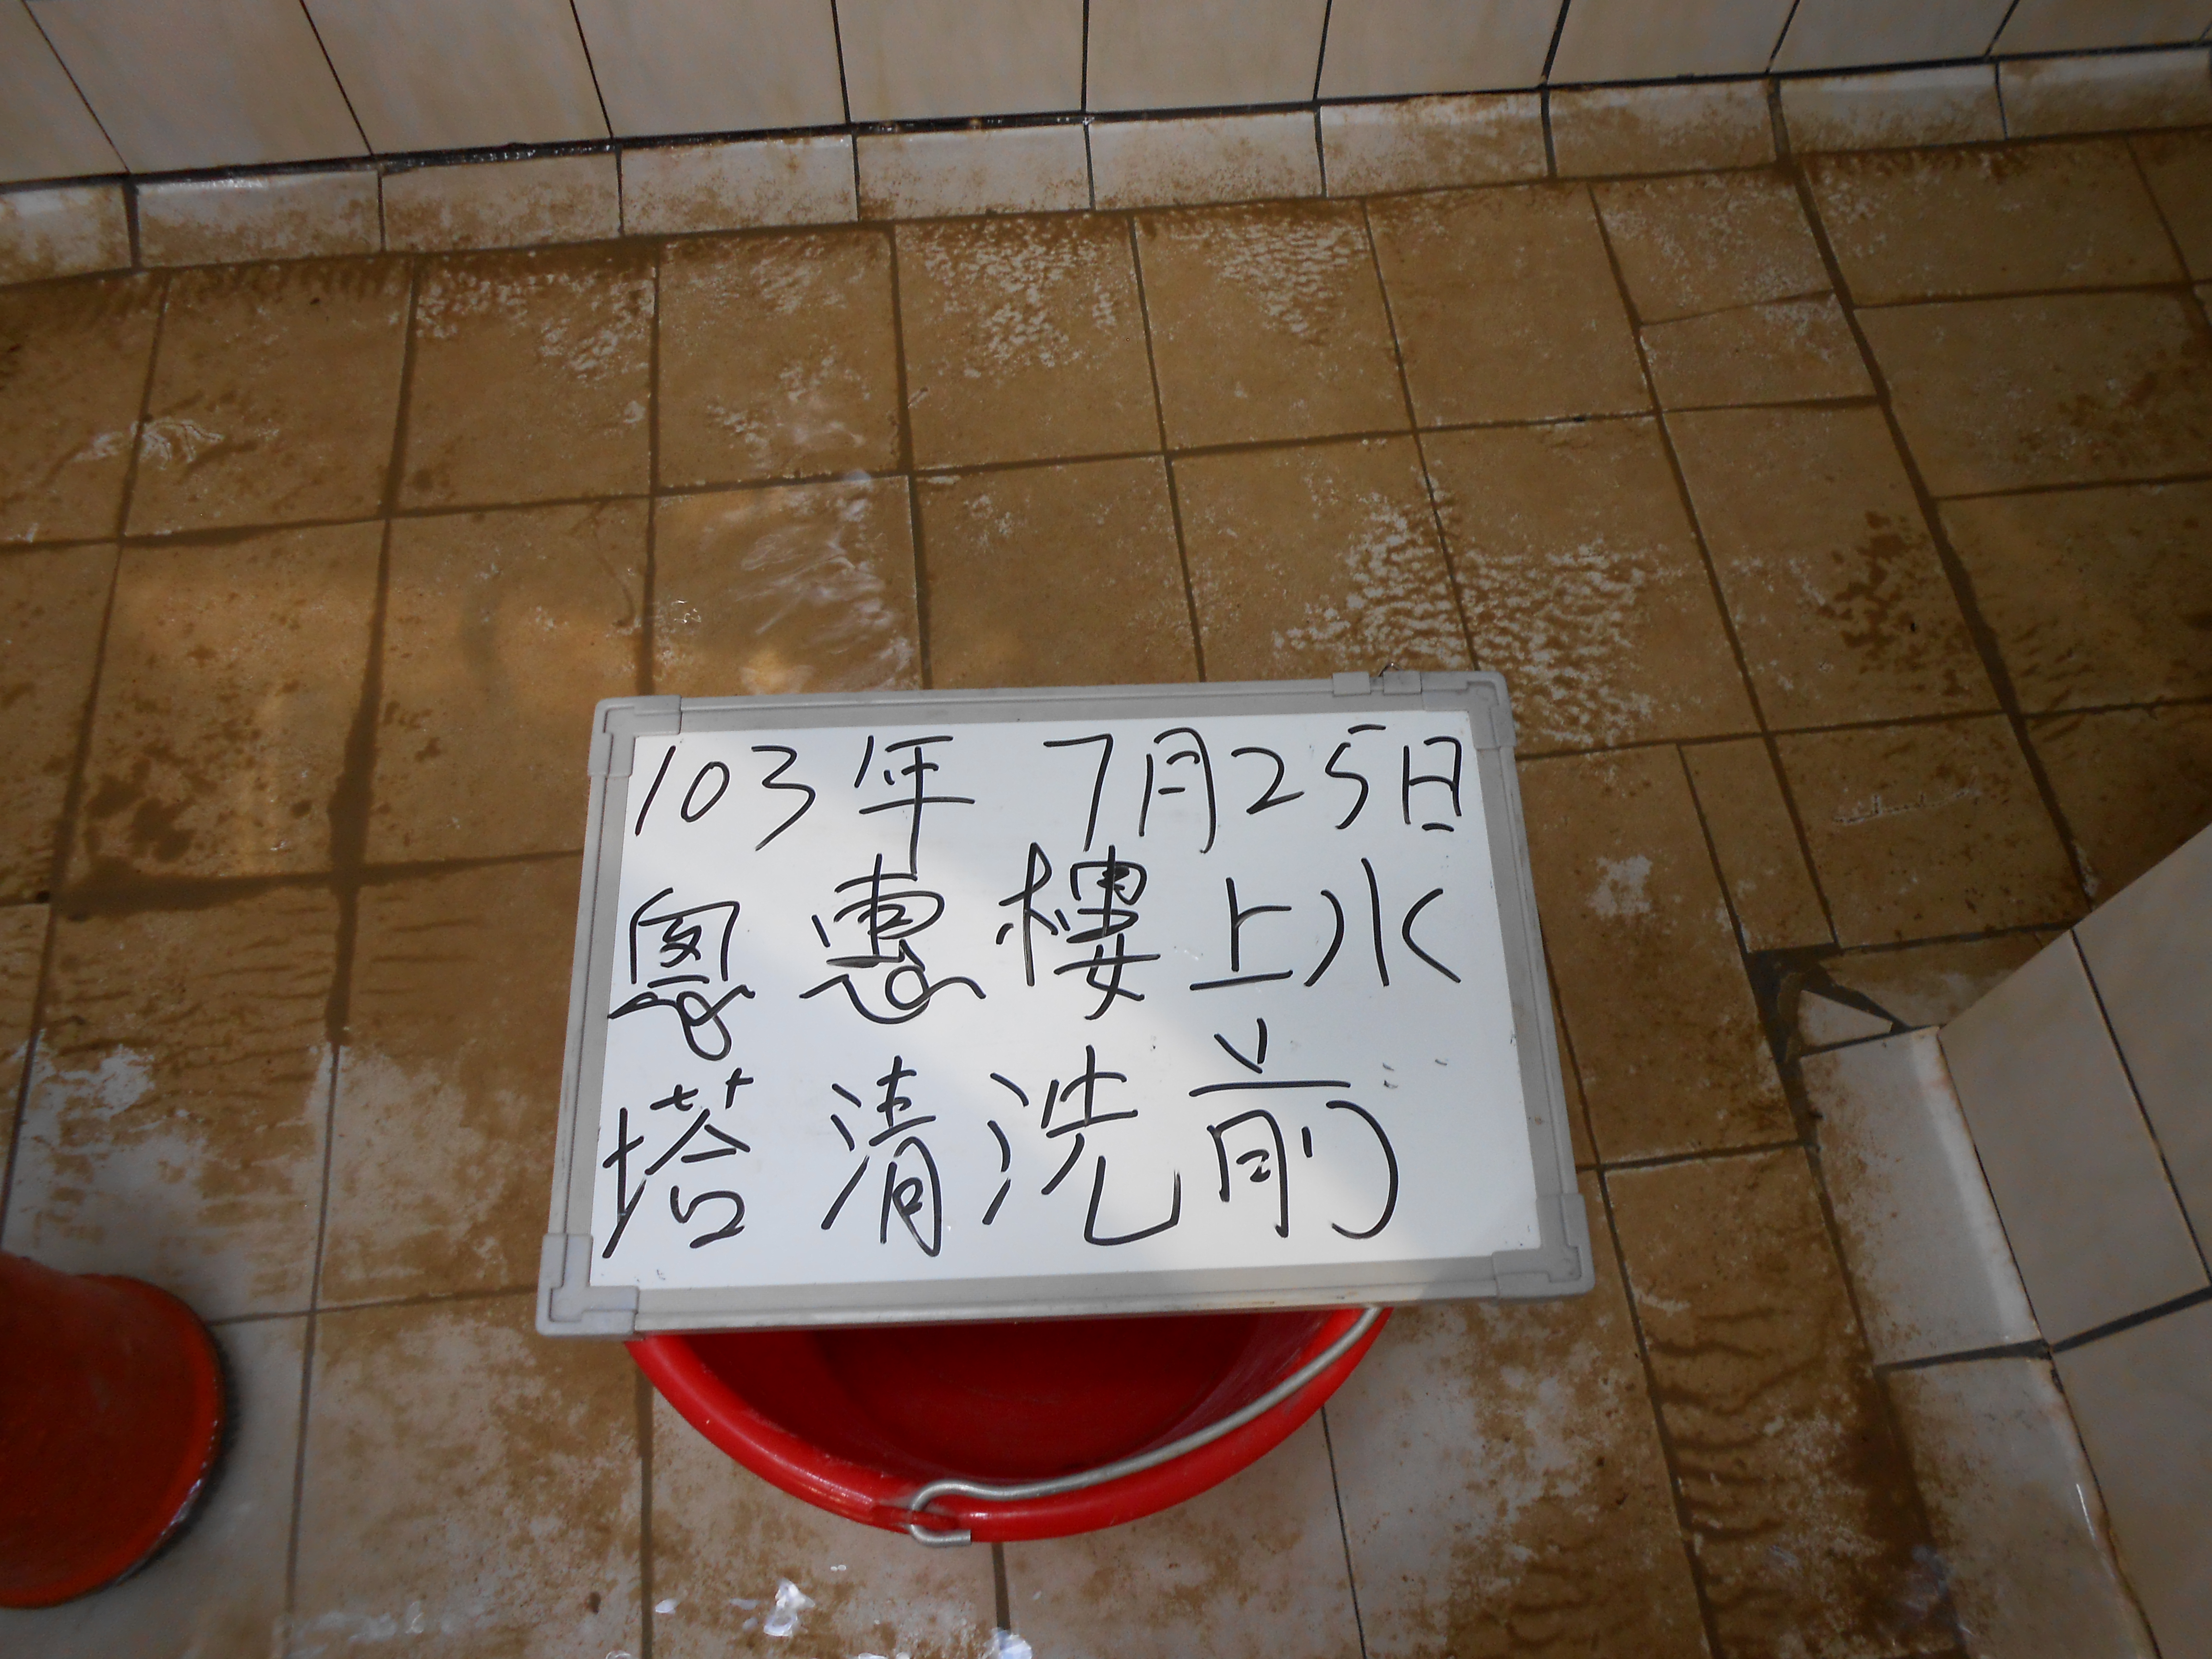 103年 7月25日
恩惠樓上水
塔清洗前